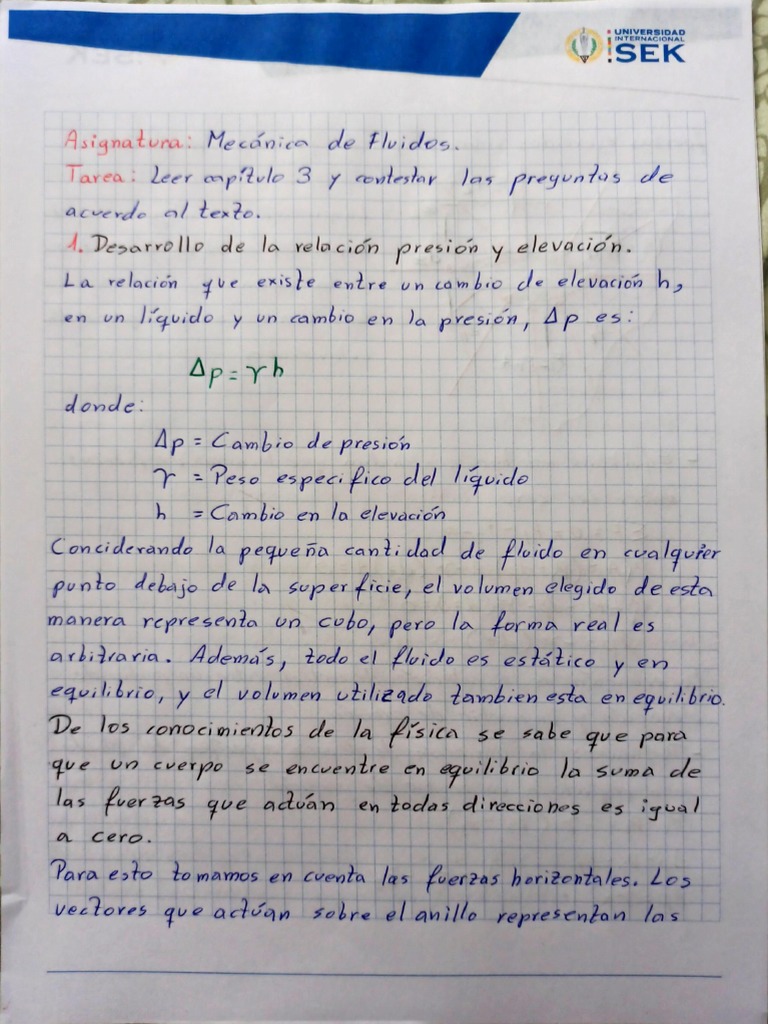 UNIVERSIDAD
INTERNACIONAL
SEK
Asignatura: Mecánica de Fluidos.
Tarea: Leer capítulo 3 y contestar las preguntas de
acuerdo al texto.
1. Desarrollo de la relación presión y elevación.
La relación que existe entre un cambio de elevación h,
en un líquido y un cambio en la presión, Δp es:
Δp = γh
donde:
Δp = Cambio de presión
γ = Peso especifico del líquido
h = Cambio en la elevación
Conciderando la pequeña cantidad de fluido en cualquier
punto debajo de la superficie, el volumen elegido de esta
manera representa un cubo, pero la forma real es
arbitraria. Además, todo el fluido es estático y en
equilibrio, y el volumen utilizado tambien esta en equilibrio.
De los conocimientos de la física se sabe que para
que un cuerpo se encuentre en equilibrio la suma de
las fuerzas que actuán en todas direcciones es igual
a cero.
Para esto tomamos en cuenta las fuerzas horizontales. Los
vectores que actúan sobre el anillo representan las